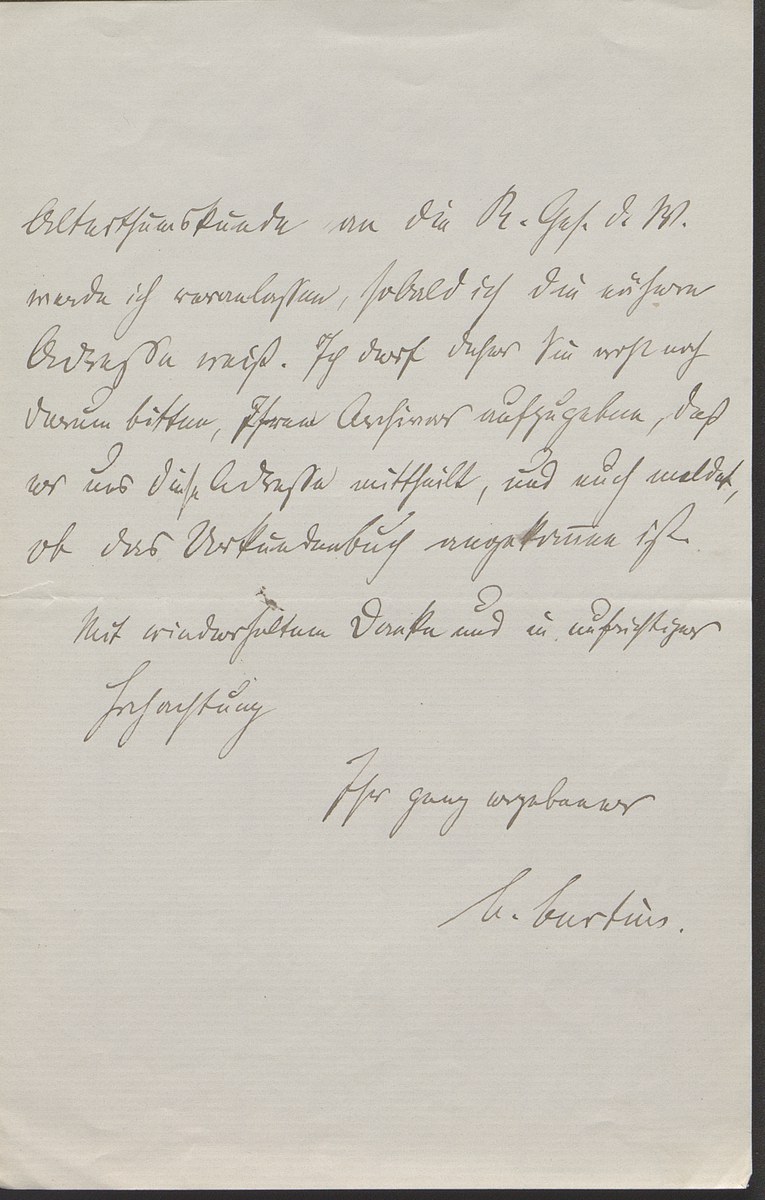 Alterthumskunde an die K. Ges. d. W.
werde ich veranlassen, sobald ich die nähere
Adresse weiß. Ich darf daher Sie wohl noch
darum bitten, Ihrem Archivar aufzugeben, daß
er uns diese Adresse mittheilt, und auch meldet,
ob das Urkundenbuch angekom̅en ist.
Mit wiederholtem Danke und in aufrichtiger
Hochachtung
Ihr ganz ergebener
C. Curtius.